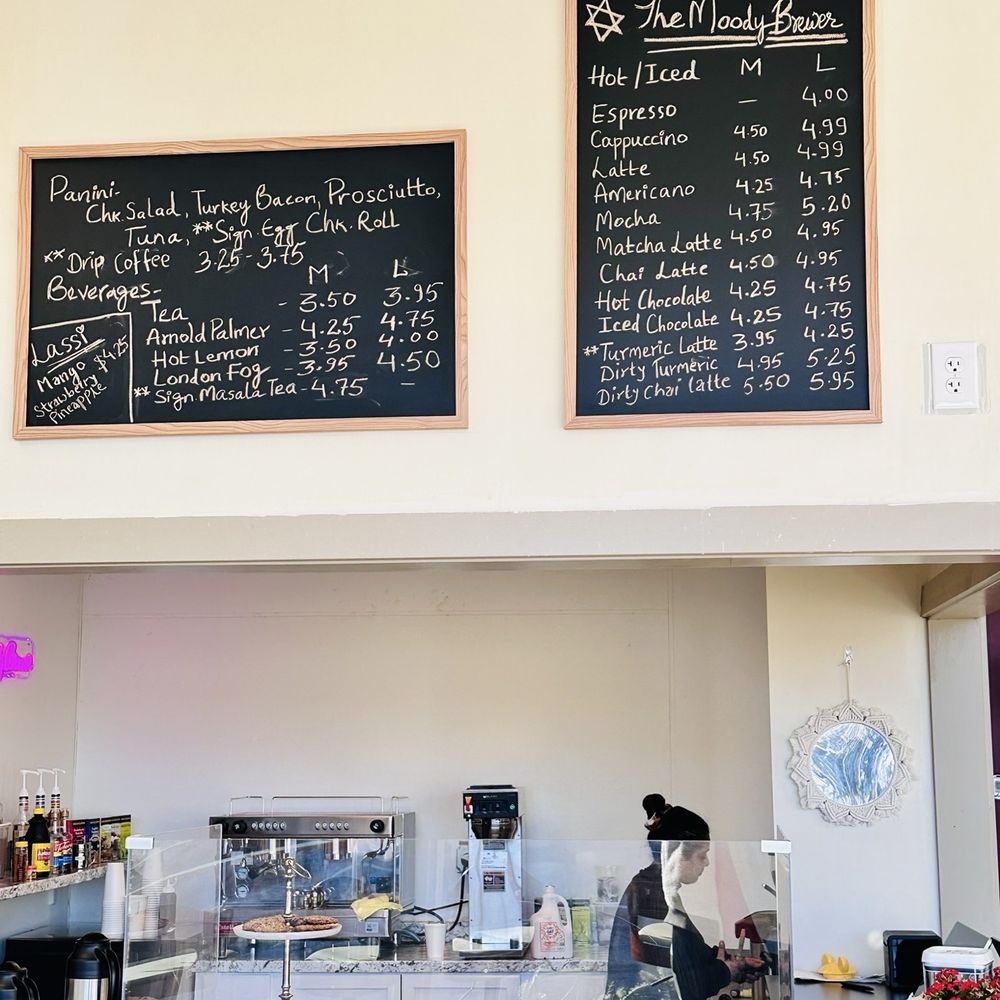 Panini-
Chk. Salad, Turkey Bacon, Prosciutto,
Tuna, **Sign. Egg Chk. Roll
**Drip Coffee 3.25 - 3.75
Beverages- M L
Tea - 3.50 3.95
Arnold Palmer - 4.25 4.75
Hot Lemon - 3.50 4.00
London Fog - 3.95 4.50
**Sign. Masala Tea - 4.75 —
Lassi
Mango $4.25
Strawberry
Pineapple
The Moody Brewer
Hot/Iced M L
Espresso — 4.00
Cappuccino 4.50 4.99
Latte 4.50 4.99
Americano 4.25 4.75
Mocha 4.75 5.20
Matcha Latte 4.50 4.95
Chai Latte 4.50 4.95
Hot Chocolate 4.25 4.75
Iced Chocolate 4.25 4.75
**Turmeric Latte 3.95 4.25
Dirty Turmeric 4.95 5.25
Dirty Chai latte 5.50 5.95